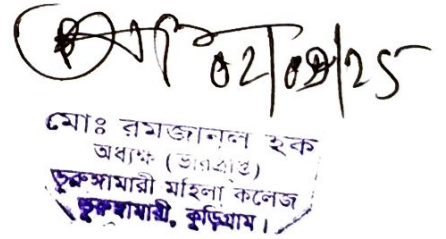 02/09/25
মোঃ রমজানুল হক
অধ্যক্ষ (ভারপ্রাপ্ত)
ভুরুঙ্গামারী মহিলা কলেজ
ভুরুঙ্গামারী, কুড়িগ্রাম।